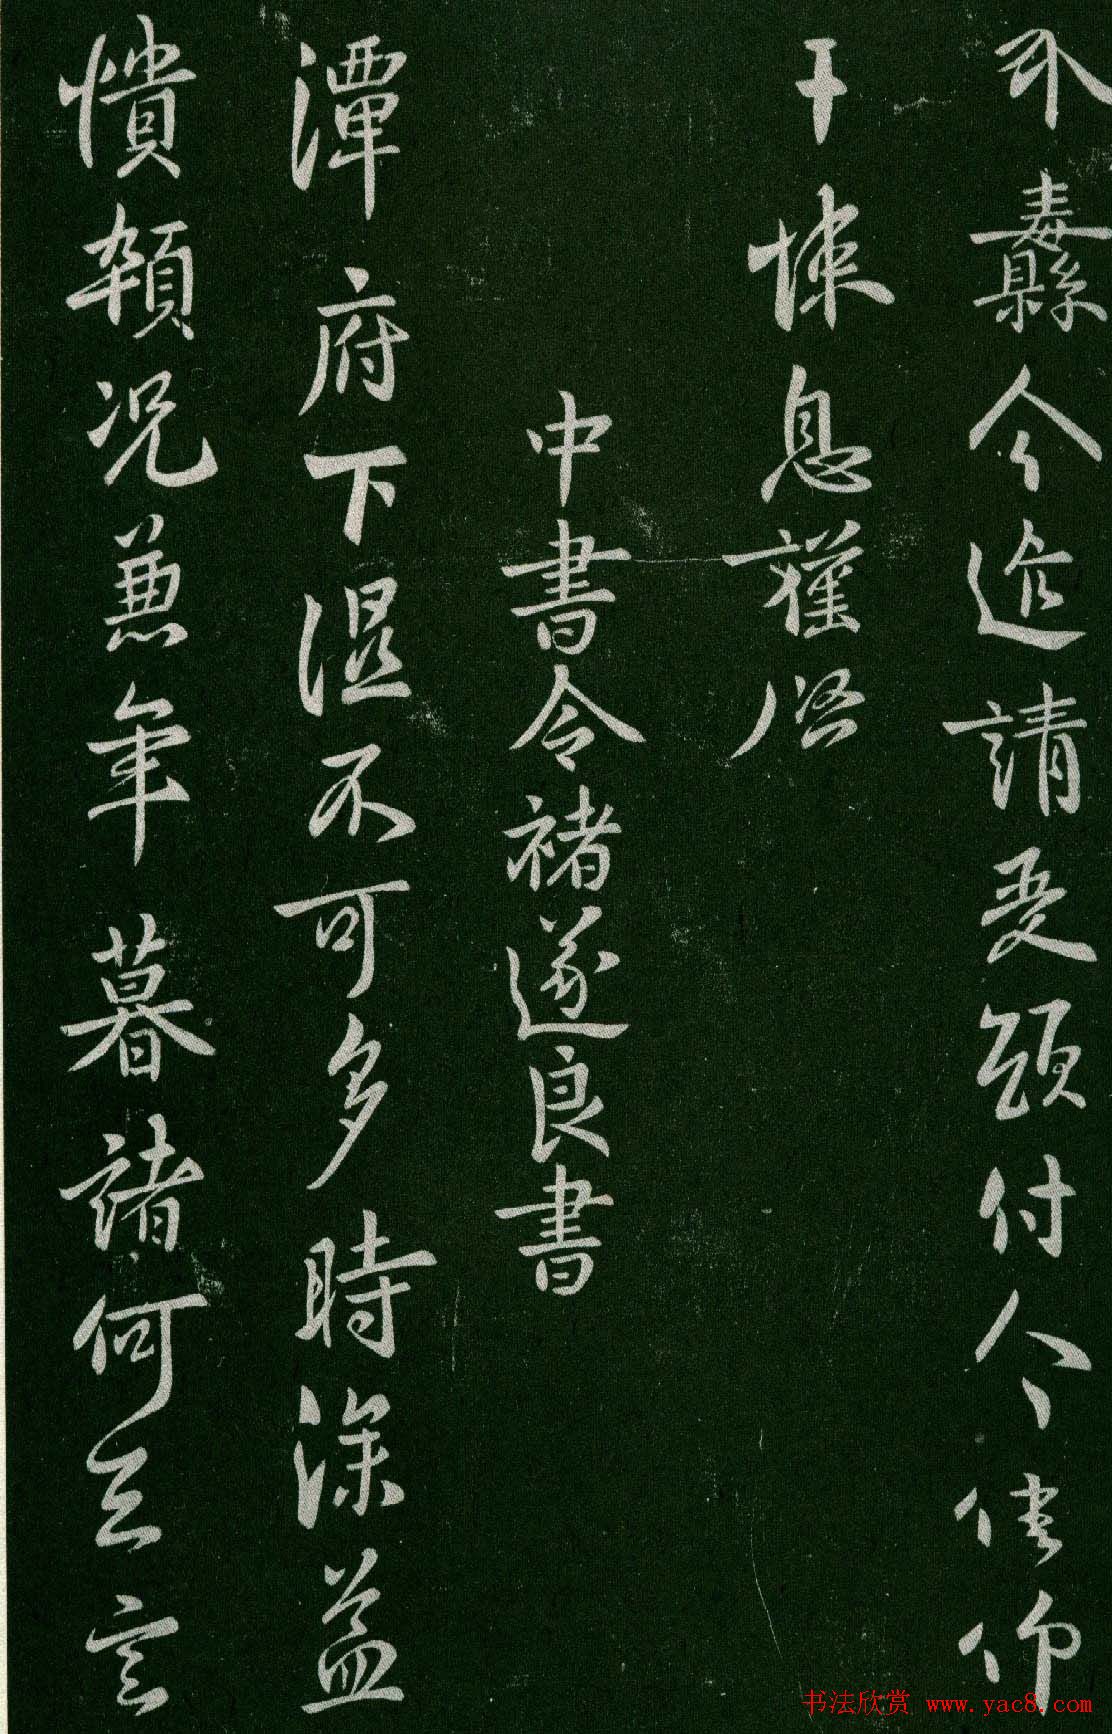 纛今請受領付人仰
干悚息謹啓
中書令褚遂良書
潭府下濕不可多時深益
憒顇況兼年暮諸何足言
书法欣赏 www.yac8.com